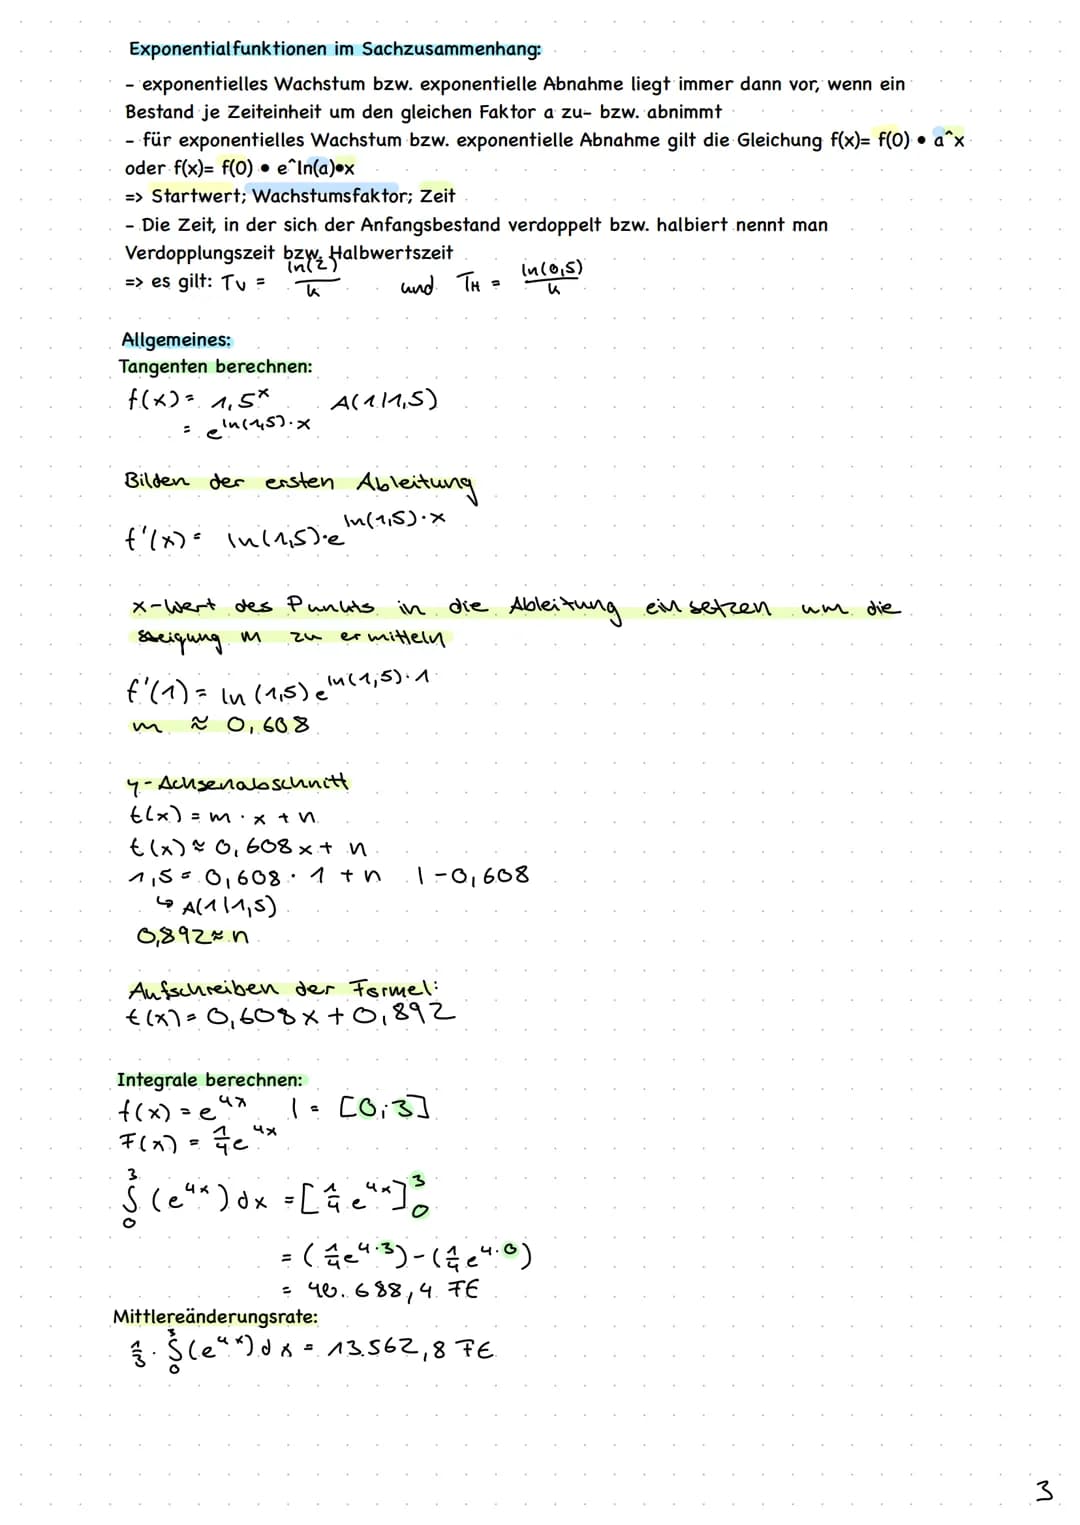 Exponentialfunktionen im Sachzusammenhang:
- exponentielles Wachstum bzw. exponentielle Abnahme liegt immer dann vor, wenn ein
Bestand je Zeiteinheit um den gleichen Faktor a zu- bzw. abnimmt
- für exponentielles Wachstum bzw. exponentielle Abnahme gilt die Gleichung f(x)= f(0) • a^x
oder f(x)= f(0) • e^ln(a)•x
=> Startwert; Wachstumsfaktor; Zeit
- Die Zeit, in der sich der Anfangsbestand verdoppelt bzw. halbiert nennt man
Verdopplungszeit bzw. Halbwertszeit
=> es gilt: Tv = ln(2)/k und TH = ln(0,5)/k
Allgemeines:
Tangenten berechnen:
f(x) = 1,5^x A(1|1,5)
= e^ln(1,5)·x
Bilden der ersten Ableitung
f'(x) = ln(1,5)·e^ln(1,5)·x
x-Wert des Punkts in die Ableitung einsetzen um die
Steigung m zu ermitteln
f'(1) = ln(1,5) e^ln(1,5)·1
m ≈ 0,608
y-Achsenabschnitt
t(x) = m · x + n
t(x) ≈ 0,608x + n
1,5 = 0,608 · 1 + n | -0,608
↳ A(1|1,5)
0,892 ≈ n
Aufschreiben der Formel:
t(x) = 0,608x + 0,892
Integrale berechnen:
f(x) = e^4x I = [0;3]
F(x) = 1/4 e^4x
3∫0 (e^4x) dx = [1/4 e^4x]3 0
= (1/4 e^4·3) - (1/4 e^4·0)
= 40.688,4 FE
Mittlereänderungsrate:
1/3 · 3∫0 (e^4x) dx = 13.562,8 FE
3